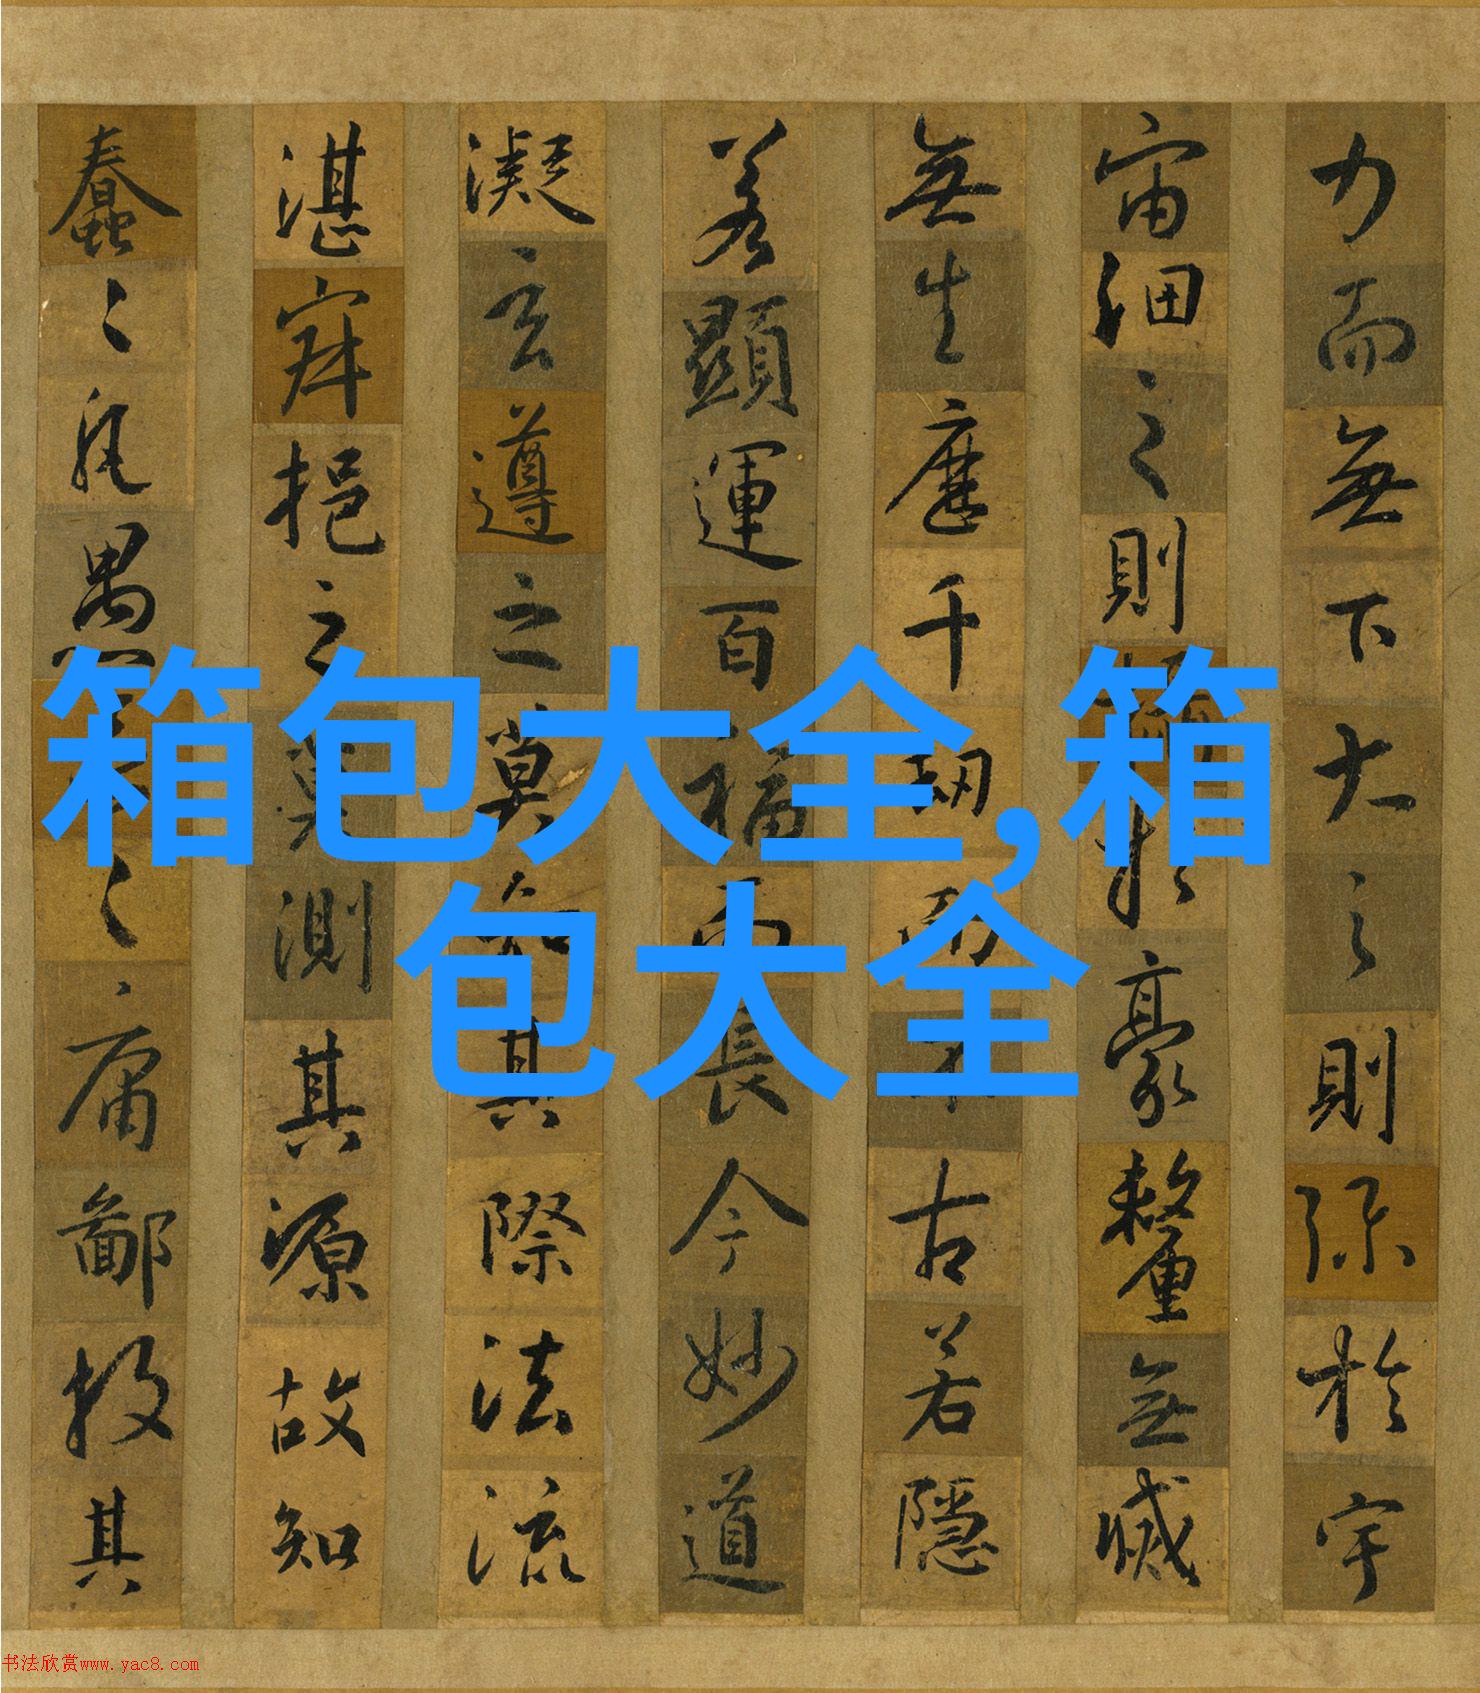 力而無下大之則弥於宇
宙細之則攝於豪釐無滅
無生歷千劫而不古若隱
若顯運百福而長今妙道
凝玄遵之莫知其際法流
湛寂挹之莫測其源故知
蠢々凡愚區々庸鄙投其
箱包大全,箱
包大全
书法欣赏www.yac8.com